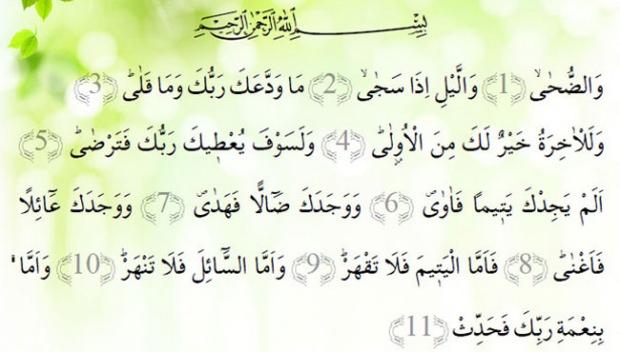 بِسْــــــــمِ اللّٰهِ الرَّحْمٰنِ الرَّح۪يمِ
وَالضُّحٰىۙ ﴿1﴾ وَالَّيْلِ اِذَا سَجٰىۙ ﴿2﴾ مَا وَدَّعَكَ رَبُّكَ وَمَا قَلٰىۜ ﴿3﴾
وَلَلْاٰخِرَةُ خَيْرٌ لَكَ مِنَ الْاُو۫لٰىۜ ﴿4﴾ وَلَسَوْفَ يُعْط۪يكَ رَبُّكَ فَتَرْضٰىۜ ﴿5﴾
اَلَمْ يَجِدْكَ يَت۪يماً فَاٰوٰىۖ ﴿6﴾ وَوَجَدَكَ ضَٓالاًّ فَهَدٰىۖ ﴿7﴾ وَوَجَدَكَ عَٓائِلاً
فَاَغْنٰىۜ ﴿8﴾ فَاَمَّا الْيَت۪يمَ فَلَا تَقْهَرْۜ ﴿9﴾ وَاَمَّا السَّٓائِلَ فَلَا تَنْهَرْۜ ﴿10﴾ وَاَمَّا
بِنِعْمَةِ رَبِّكَ فَحَدِّثْ ﴿11﴾